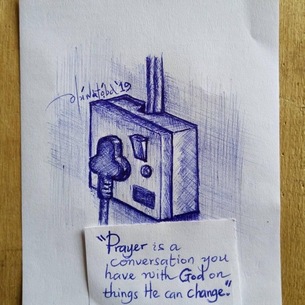 '19
"Prayer is a
conversation you
have with God on
things He can change."